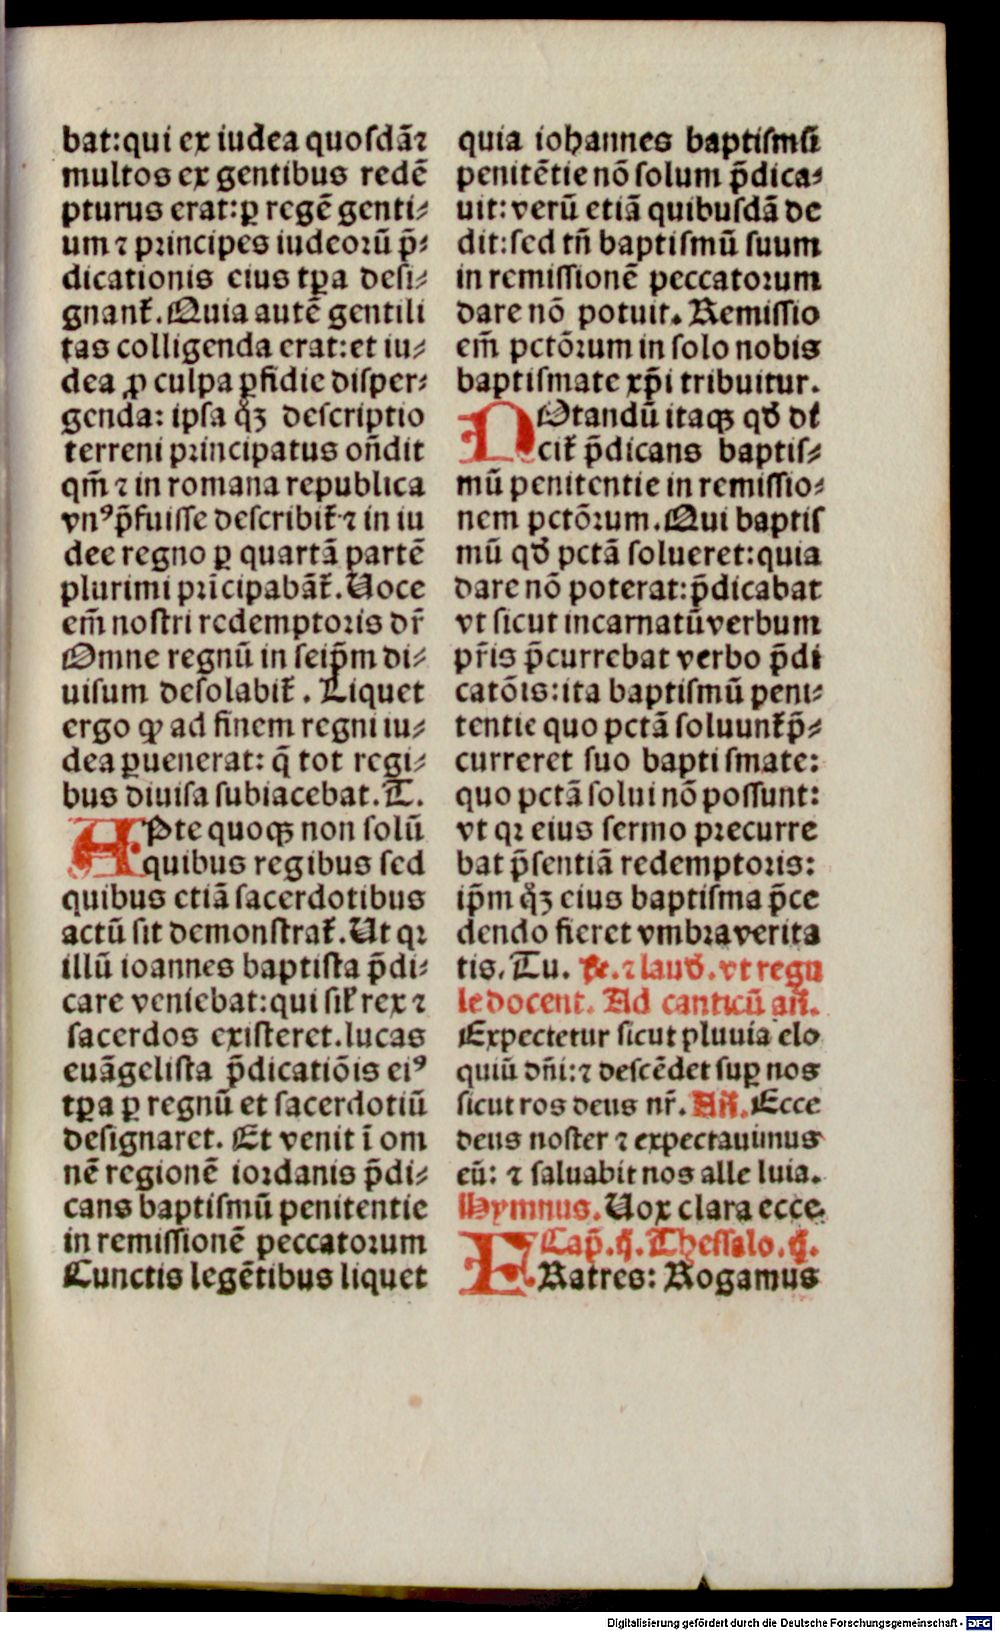 bat:qui ex iudea quosdā⁊
multos ex gentibus redē
pturus erat:ꝑ regē genti⸗
um ⁊ principes iudeorū p̄⸗
dicationis eius tꝑa desi⸗
gnant᷑. Quia autē gentili
tas colligenda erat:et iu⸗
dea ꝓ culpa ꝑfidie disper⸗
genda: ipsa qͦꝫ descriptio
terreni principatus on̄dit
qm̄ ⁊ in romana republica
vnꝰ p̄fuisse describit᷑ ⁊ in iu
dee regno ꝑ quartā partē
plurimi prīcipabāt᷑. Uoce
em̄ nostri redemptoris dr̄
Omne regnū in seip̄m di⸗
uisum desolabit᷑. Liquet
ergo ꝙ ad finem regni iu⸗
dea ꝑuenerat: q̄ tot regi⸗
bus diuisa subiacebat. T.
APte quoqꝫ non solū
quibus regibus sed
quibus etiā sacerdotibus
actū sit demonstrat᷑. Ut qꝛ
illū ioannes baptista p̄di⸗
care veniebat:qui sil̕ rex ⁊
sacerdos existeret.lucas
euāgelista p̄dicatiōis eiꝰ
tꝑa ꝑ regnū et sacerdotiū
designaret. Et venit ī om
nē regionē iordanis p̄di⸗
cans baptismū penitentie
in remissionē peccatorum
Cunctis legētibus liquet
quia iohannes baptismū
penitētie nō solum p̄dica⸗
uit: verū etiā quibusdā de
dit:sed tn̄ baptismū suum
in remissionē peccatorum
dare nō potuit. Remissio
em̄ pctōrum in solo nobis
baptismate xp̄i tribuitur.
NOtandū itaqꝫ qđ di
cit᷑ p̄dicans baptis⸗
mū penitentie in remissio⸗
nem pctōrum. Qui baptis
mū qđ pctā solueret:quia
dare nō poterat:p̄dicabat
vt sicut incarnatū verbum
pr̄is p̄currebat verbo p̄di
catōis:ita baptismū peni⸗
tentie quo pctā soluunt᷑ p̄⸗
curreret suo baptismate:
quo pctā solui nō possunt:
vt qꝛ eius sermo precurre
bat p̄sentiā redemptoris:
ip̄m qͦꝫ eius baptisma p̄ce
dendo fieret vmbra verita
tis. Tu. ⁊ lauđ. vt regu
le docent. Ad canticū an̄.
Expectetur sicut pluuia elo
quiū dn̄i:⁊ descēdet suꝑ nos
sicut ros deus nr̄. An̄. Ecce
deus noster ⁊ expectauimus
eū: ⁊ saluabit nos alle luia.
Hymnus. Uox clara ecce.
Cap̄. ij. Thessalo. ij.
FRatres: Rogamus
Digitalisierung gefördert durch die Deutsche Forschungsgemeinschaft - DFG